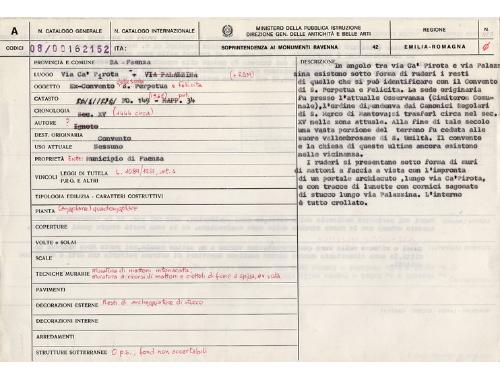 A
N. CATALOGO GENERALE
N. CATALOGO INTERNAZIONALE
MINISTERO DELLA PUBBLICA ISTRUZIONE
DIREZIONE GEN. DELLE ANTICHITÀ E BELLE ARTI
REGIONE
N.
CODICI
08/00162152
ITA:
SOPRINTENDENZA AI MONUMENTI RAVENNA
42
EMILIA-ROMAGNA
PROVINCIA E COMUNE RA - Faenza
LUOGO Via Ca' Pirota + VIA PALAZZINA
OGGETTO Ex-Convento S. Perpetua e Felicita
CATASTO FG. 149 - MAPP. 34
CRONOLOGIA Sec. XV
AUTORE ? Ignoto
DEST. ORIGINARIA Convento
USO ATTUALE Nessuno
PROPRIETÀ Ente: Municipio di Faenza
VINCOLI LEGGI DI TUTELA
P.R.G. E ALTRI
TIPOLOGIA EDILIZIA - CARATTERI COSTRUTTIVI
PIANTA
COPERTURE
VOLTE o SOLAI
SCALE
TECNICHE MURARIE Muratura di mattoni intonacata;
PAVIMENTI
DECORAZIONI ESTERNE Resti di archeggiature di stucco
DECORAZIONI INTERNE
ARREDAMENTI
STRUTTURE SOTTERRANEE
DESCRIZIONE
In angolo tra via Ca' Pirota e via Palaz
zina esistono sotto forma di ruderi i resti
di quello che si può identificare con il Convento
di S. Perpetua e Felicita. La sede originaria
fu presso l'attuale Osservanza (Cimitero Comu-
nale), l'ordine dipendeva dai Canonici Regolari
di S. Marco di Mantova; si trasferì circa nel sec.
XV nella zona attuale. Alla fine di tale secolo
una vasta porzione del terreno fu ceduta alle
suore vallombrosane di S. Umiltà. Il convento
e la chiesa di queste ultime ancora esistono
nelle vicinanze.
I ruderi si presentano sotto forma di muri
di mattoni a faccia a vista con l'impronta
di un portale archiacuto, lungo via Ca' Pirota,
e con tracce di lunette con cornici sagomate
di stucco lungo via Palazzina. L'interno
è tutto crollato.